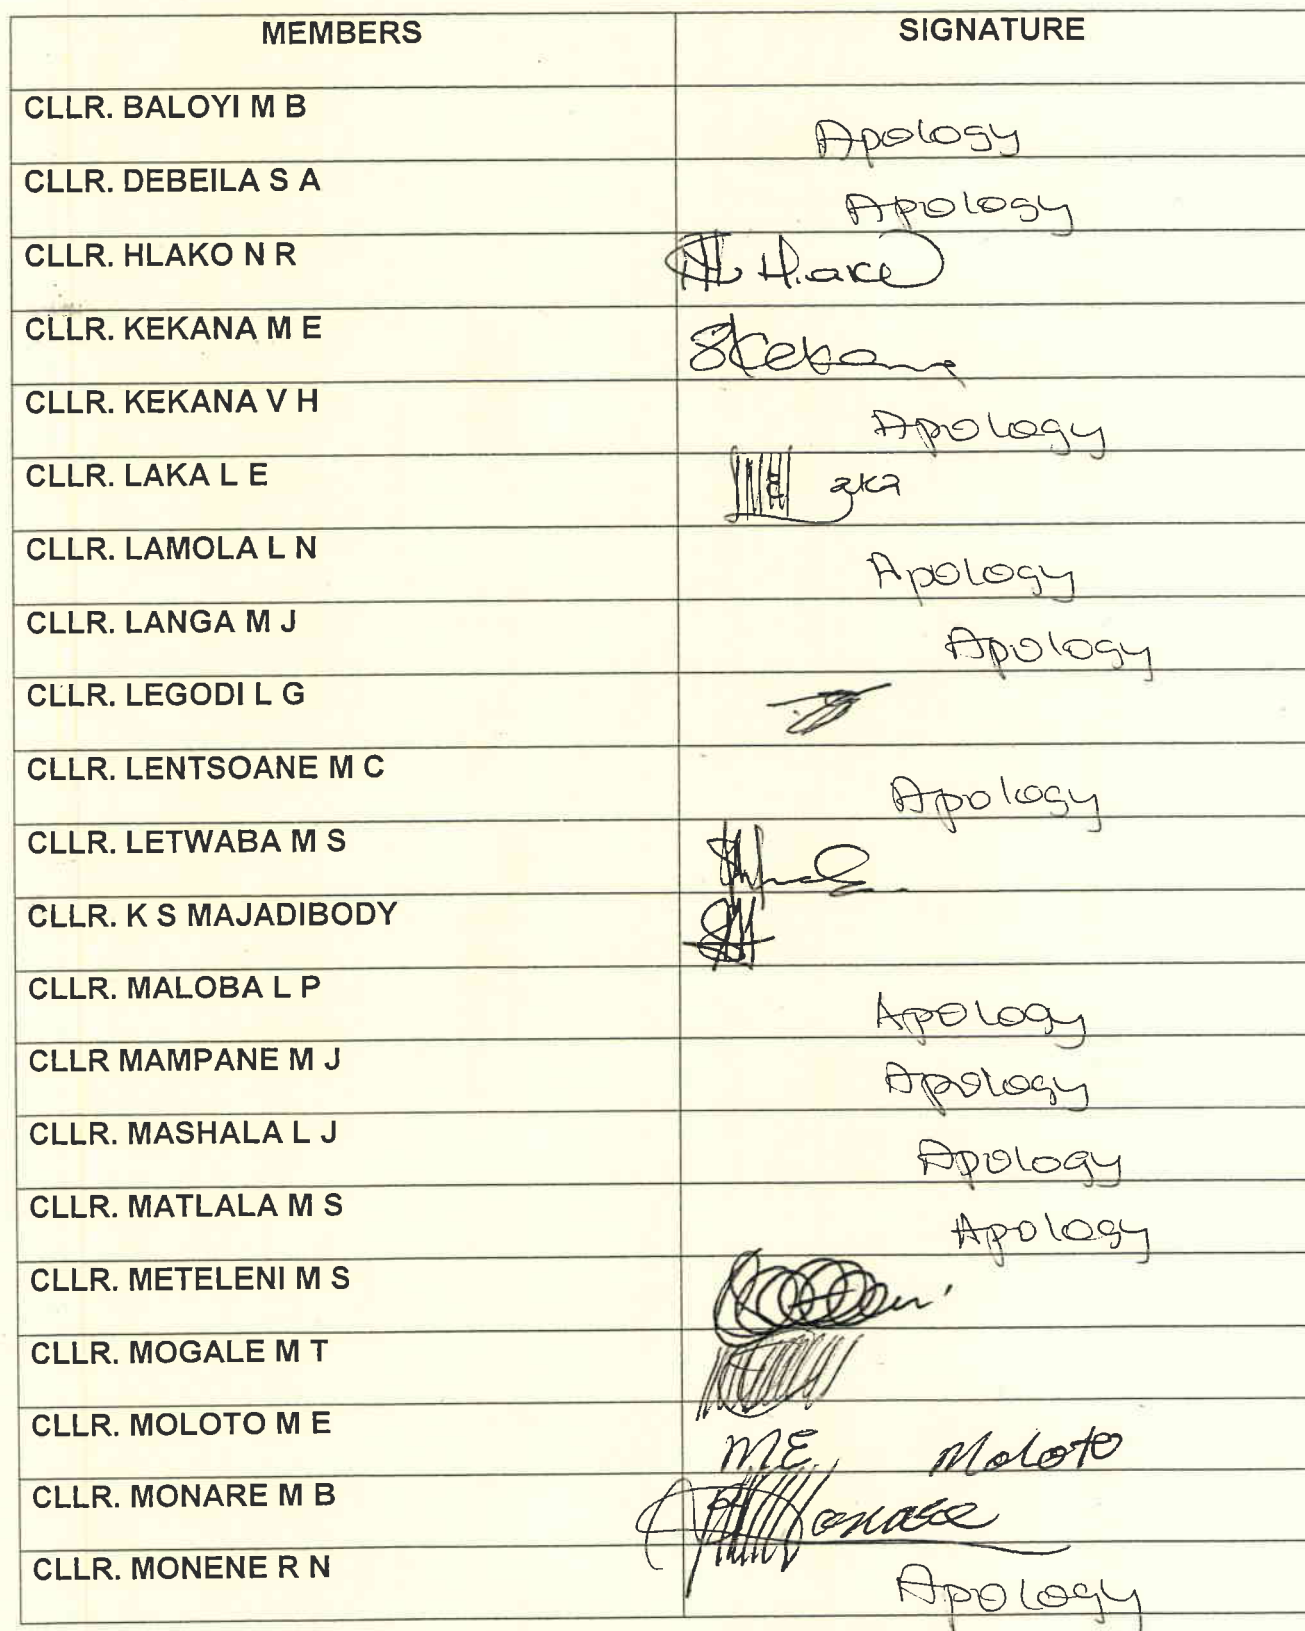 MEMBERS SIGNATURE
CLLR. BALOYI M B Apology
CLLR. DEBEILA S A Apology
CLLR. HLAKO N R Hlako
CLLR. KEKANA M E SKekana
CLLR. KEKANA V H Apology
CLLR. LAKA L E Laka
CLLR. LAMOLA L N Apology
CLLR. LANGA M J Apology
CLLR. LEGODI L G
CLLR. LENTSOANE M C Apology
CLLR. LETWABA M S
CLLR. K S MAJADIBODY
CLLR. MALOBA L P Apology
CLLR MAMPANE M J Apology
CLLR. MASHALA L J Apology
CLLR. MATLALA M S Apology
CLLR. METELENI M S
CLLR. MOGALE M T
CLLR. MOLOTO M E M.E. Moloto
CLLR. MONARE M B Monare
CLLR. MONENE R N Apology